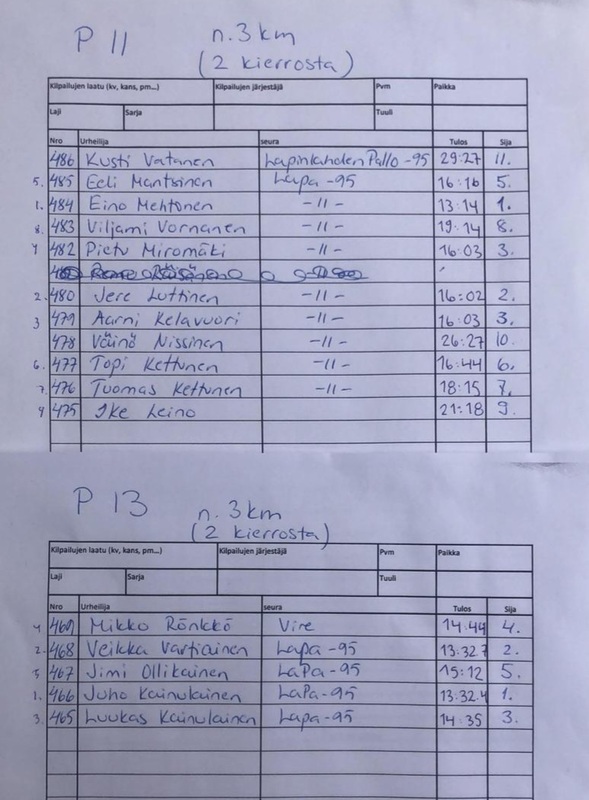 P 11 n. 3 km
(2 kierrosta)
Kilpailujen laatu (kv, kans, pm...) Kilpailujen järjestäjä Pvm Paikka
Laji Sarja Tuuli
Nro Urheilija seura Tulos Sija
486 Kusti Vatanen Lapinlahden Pallo -95 29:27 11.
5. 485 Eeli Mantsinen Lapa -95 16:16 5.
1. 484 Eino Mehtonen -11- 13:14 1.
8. 483 Viljami Vornanen -11- 19:14 8.
4 482 Pietu Miromäki -11- 16:03 3.
2. 480 Jere Luttinen -11- 16:02 2.
3 479 Aarni Kelavuori -11- 16:03 3.
478 Väinö Nissinen -11- 26:27 10.
6. 477 Topi Kettunen -11- 16:44 6.
7. 476 Tuomas Kettunen -11- 18:15 7.
9 475 Ike Leino 21:18 9.
P 13 n. 3 km
(2 kierrosta)
Kilpailujen laatu (kv, kans, pm...) Kilpailujen järjestäjä Pvm Paikka
Laji Sarja Tuuli
Nro Urheilija seura Tulos Sija
4 469 Mikko Rönkkö Vire 14:44 4.
2. 468 Veikka Vartiainen Lapa -95 13:32.7 2.
5 467 Jimi Ollikainen LaPa -95 15:12 5.
1. 466 Juho Kainulainen LaPa -95 13:32.4 1.
3. 465 Luukas Kainulainen Lapa -95 14:35 3.